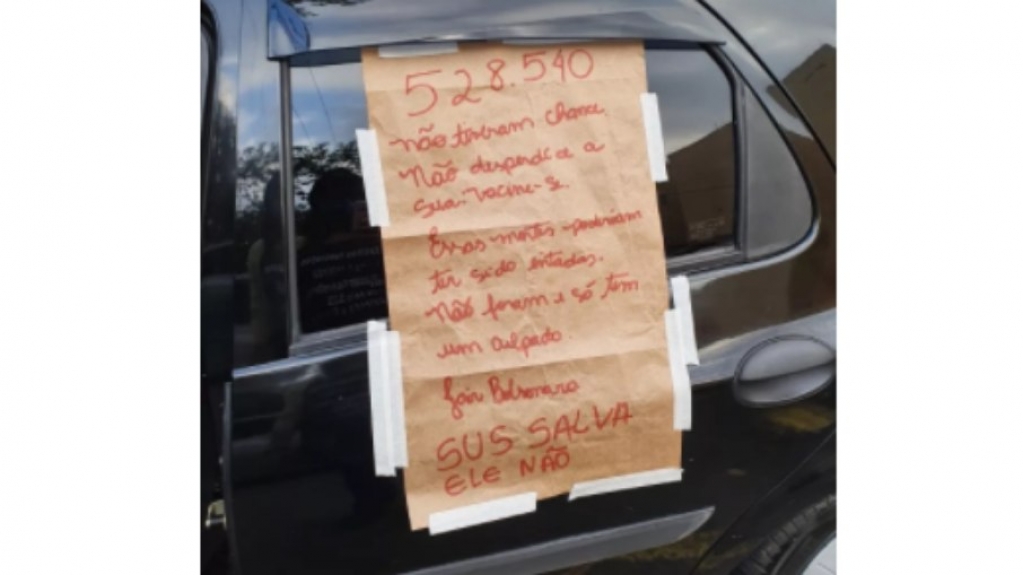 528.540
não tiveram chance.
Não desperdice a
sua: Vacine-se.
Essas mortes podiam
ter sido evitadas.
Não foram e só tem
um culpado.
Jair Bolsonaro
SUS SALVA
ELE NÃO